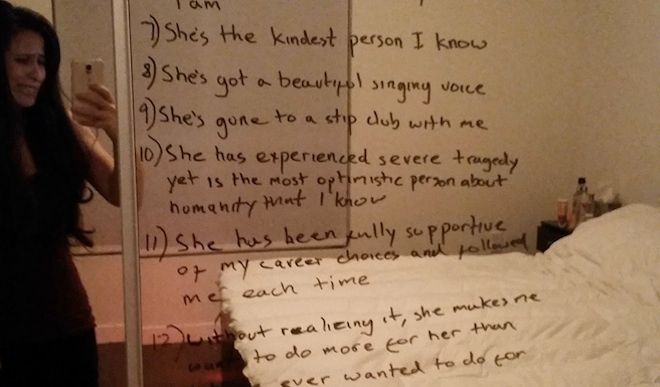 I am
7) She's the kindest person I know
8) She's got a beautiful singing voice
9) She's gone to a stip club with me
10) She has experienced severe tragedy
yet is the most optimistic person about
humanity that I know
11) She has been fully supportive
of my career choices and followed
me each time
12) Without realizing it, she makes me
to do more for her than
ever wanted to do for